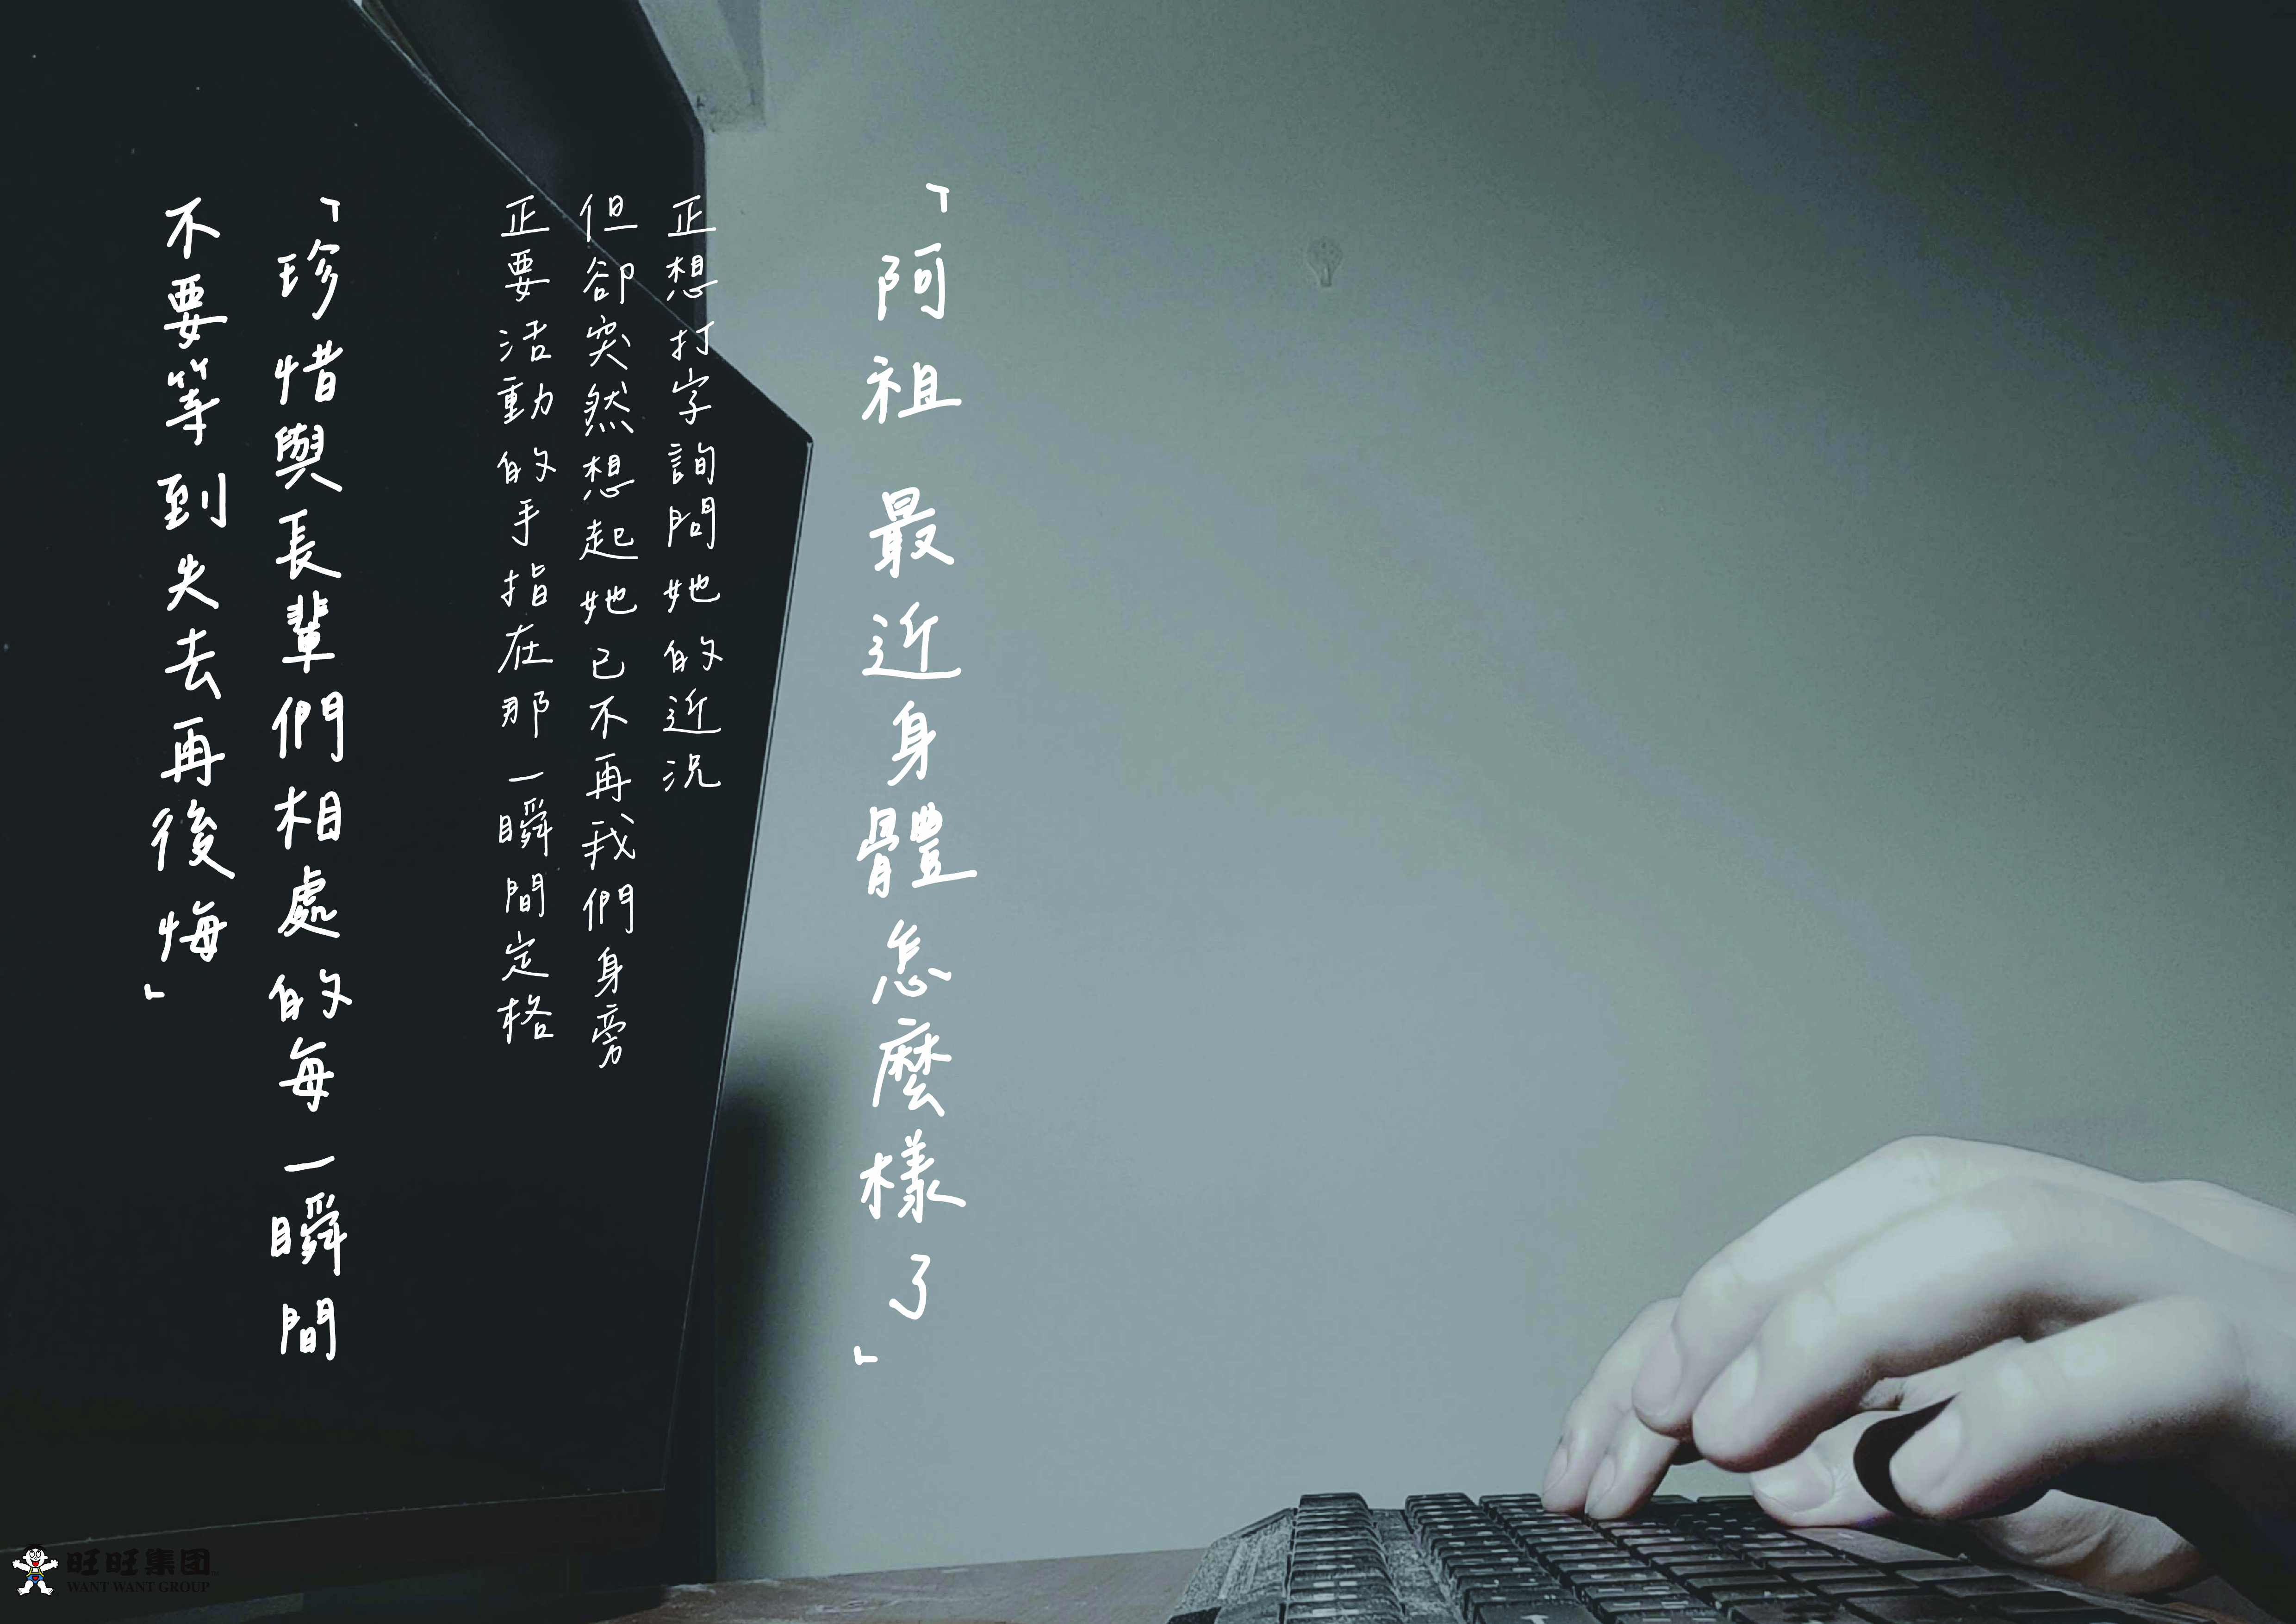 「阿祖 最近身體怎麼樣了」
正想打字詢問她的近況
但卻突然想起她已不再我們身旁
正要活動的手指在那一瞬間定格
「珍惜與長輩們相處的每一瞬間
不要等到失去再後悔」
旺旺集团
WANT WANT GROUP